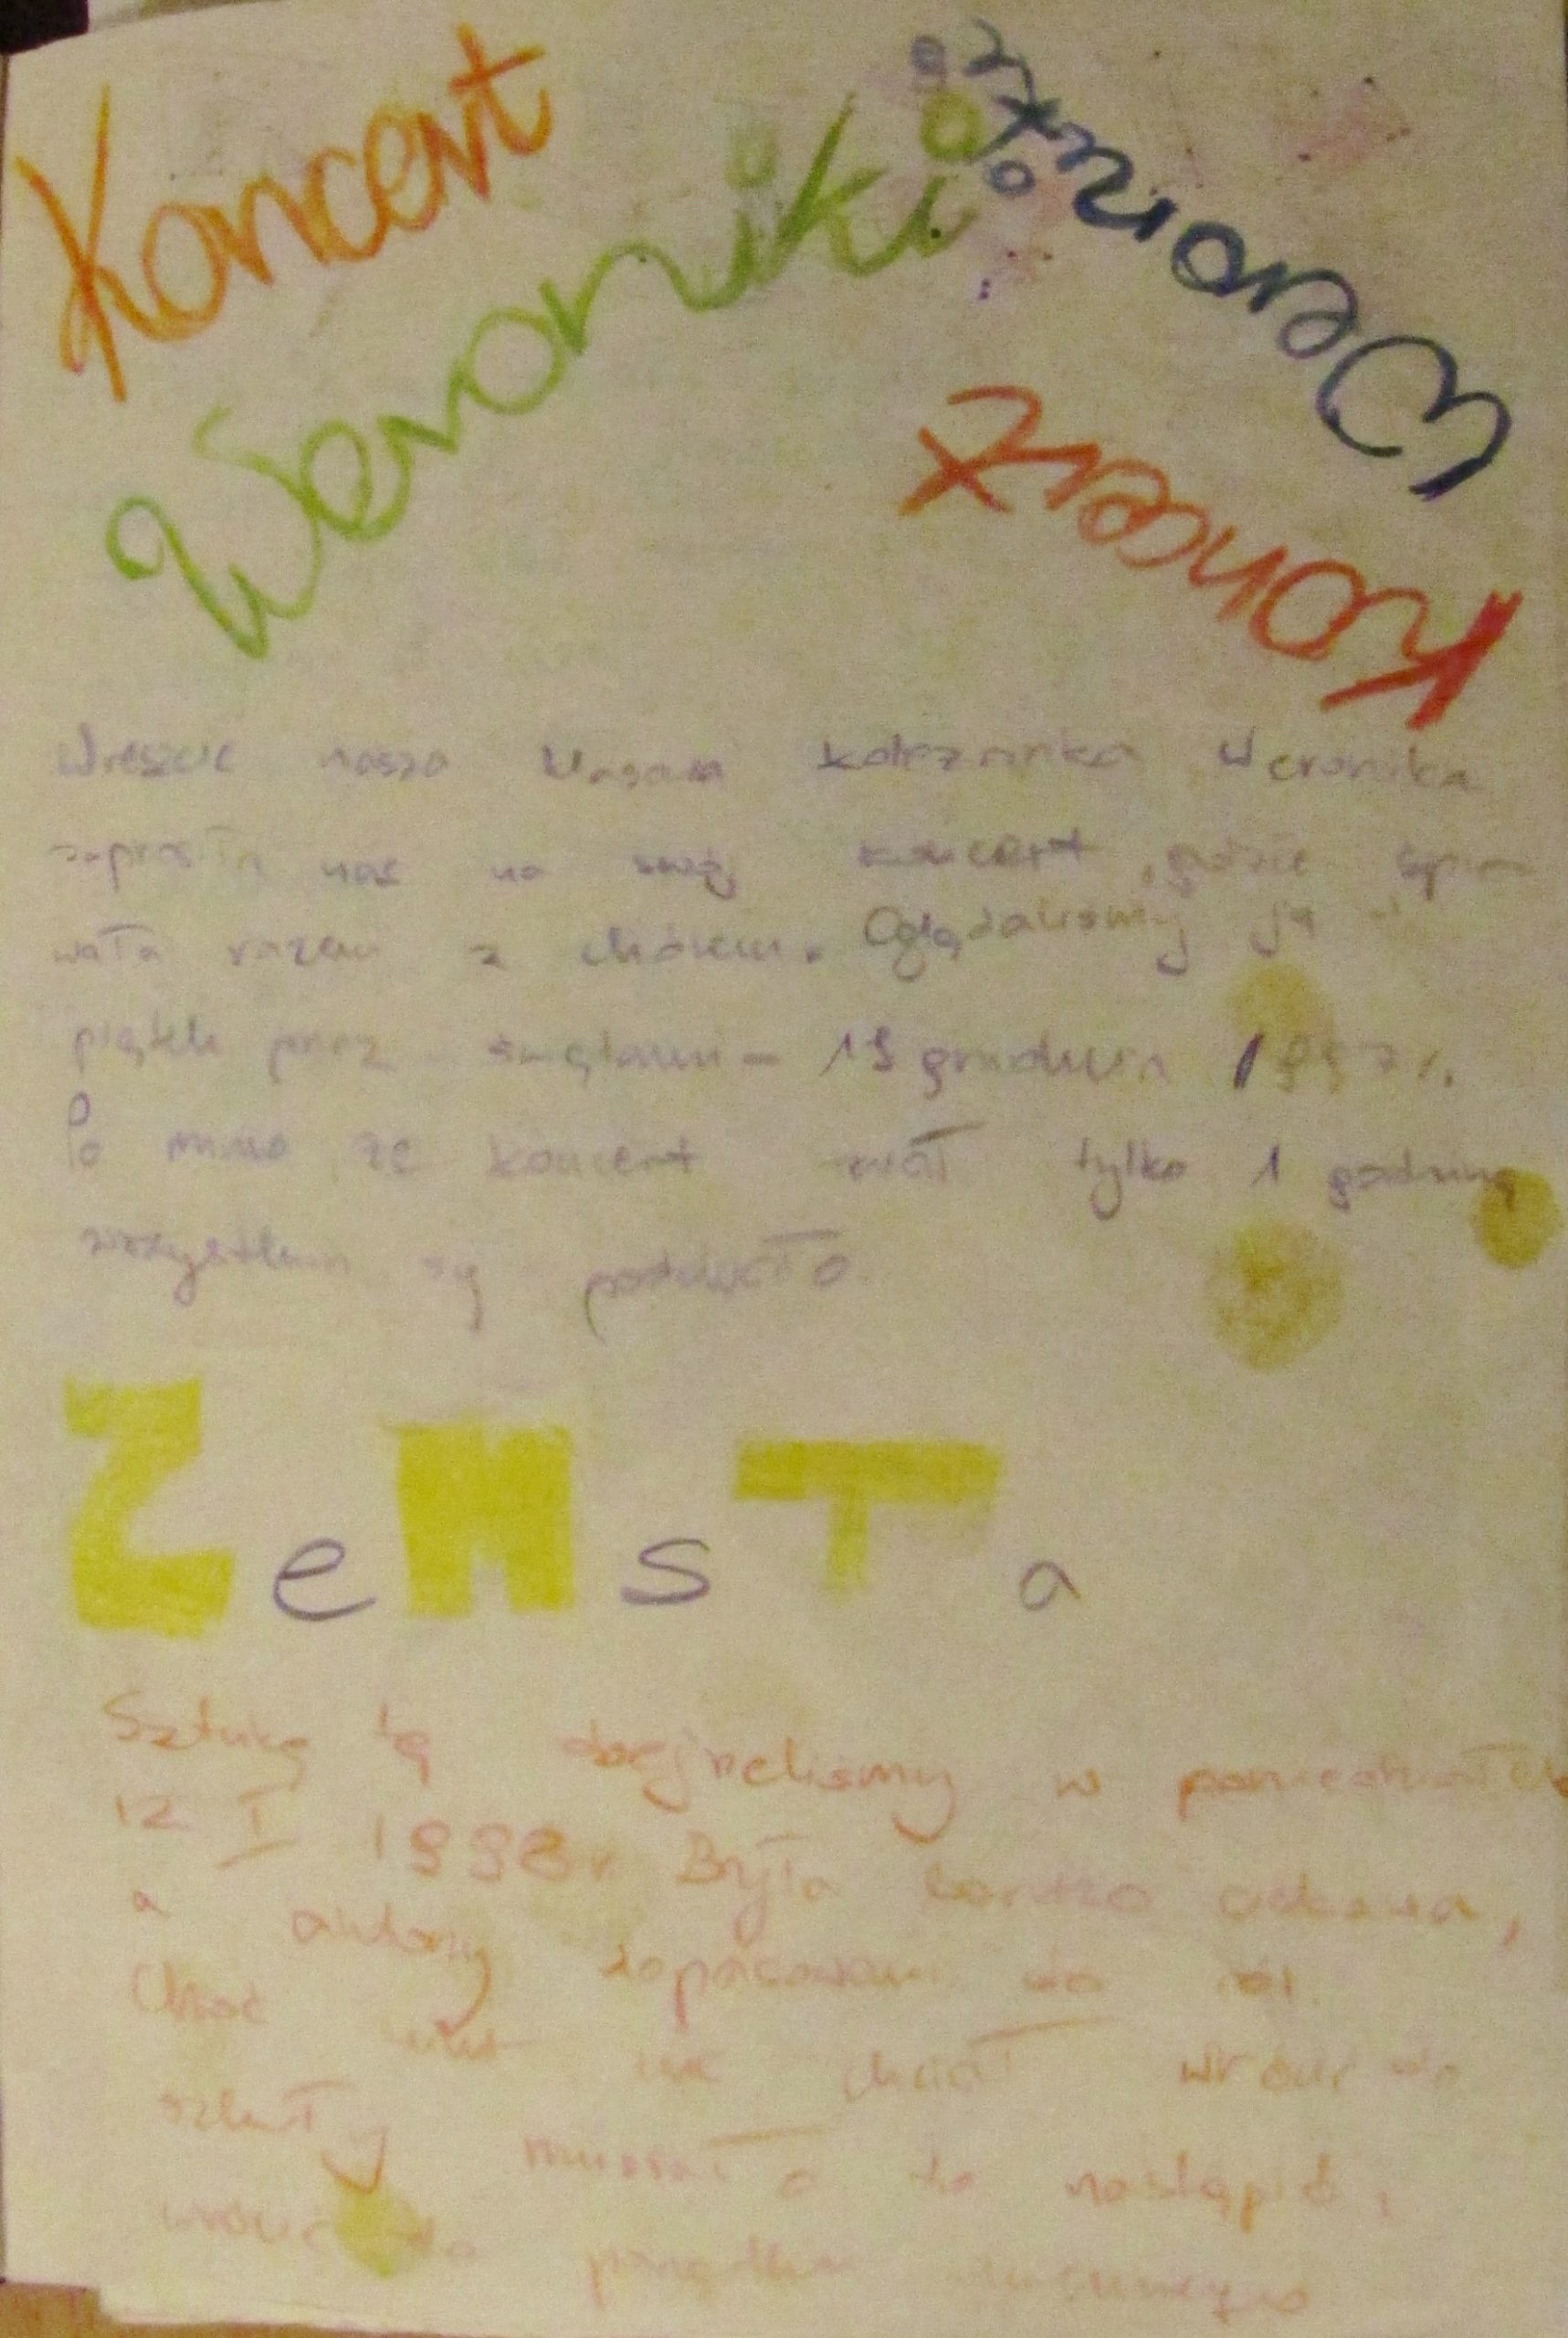 Koncert
Weroniki
Weroniki
Koncert
Wreszcie nasza koleżanka Weronika
zaprosiła nas na swój koncert, gdzie śpie
wała razem z chórem. Oglądaliśmy ją w
piątek przez świętami - 19 grudnia 1997 r.
Po mimo że koncert trwał tylko 1 godzinę
wszystkim się podobało.
ZeMsTa
Sztukę tą obejrzeliśmy w poniedziałek
12 I 1998r Była bardzo ciekawa,
a aktorzy dopasowani do ról.
Choć nikt nie chciał wrócić do
szkoły musiało to nastąpić,
wrócić do